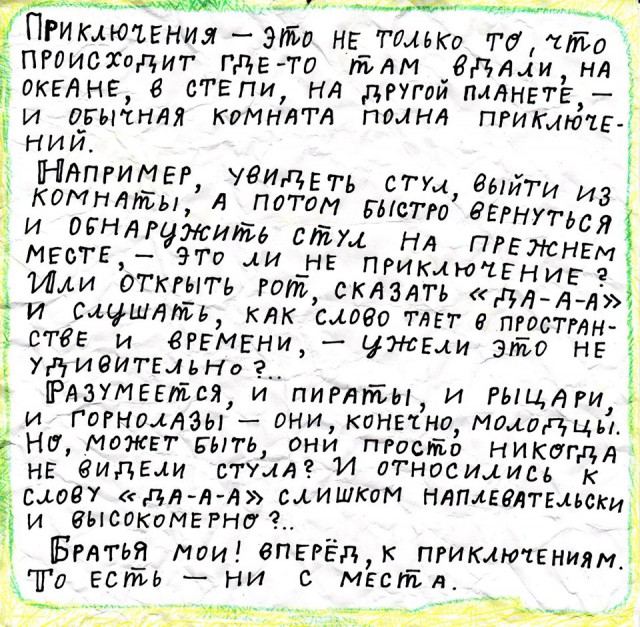 Приключения — это не только то, что
происходит где-то там вдали, на
океане, в степи, на другой планете, —
и обычная комната полна приключе-
ний.
Например, увидеть стул, выйти из
комнаты, а потом быстро вернуться
и обнаружить стул на прежнем
месте, — это ли не приключение?
Или открыть рот, сказать «да-а-а»
и слушать, как слово тает в простран-
стве и времени, — ужели это не
удивительно?..
Разумеется, и пираты, и рыцари,
и горнолазы — они, конечно, молодцы.
Но, может быть, они просто никогда
не видели стула? И относились к
слову «да-а-а» слишком наплевательски
и высокомерно?..
Братья мои! вперёд, к приключениям.
То есть — ни с места.